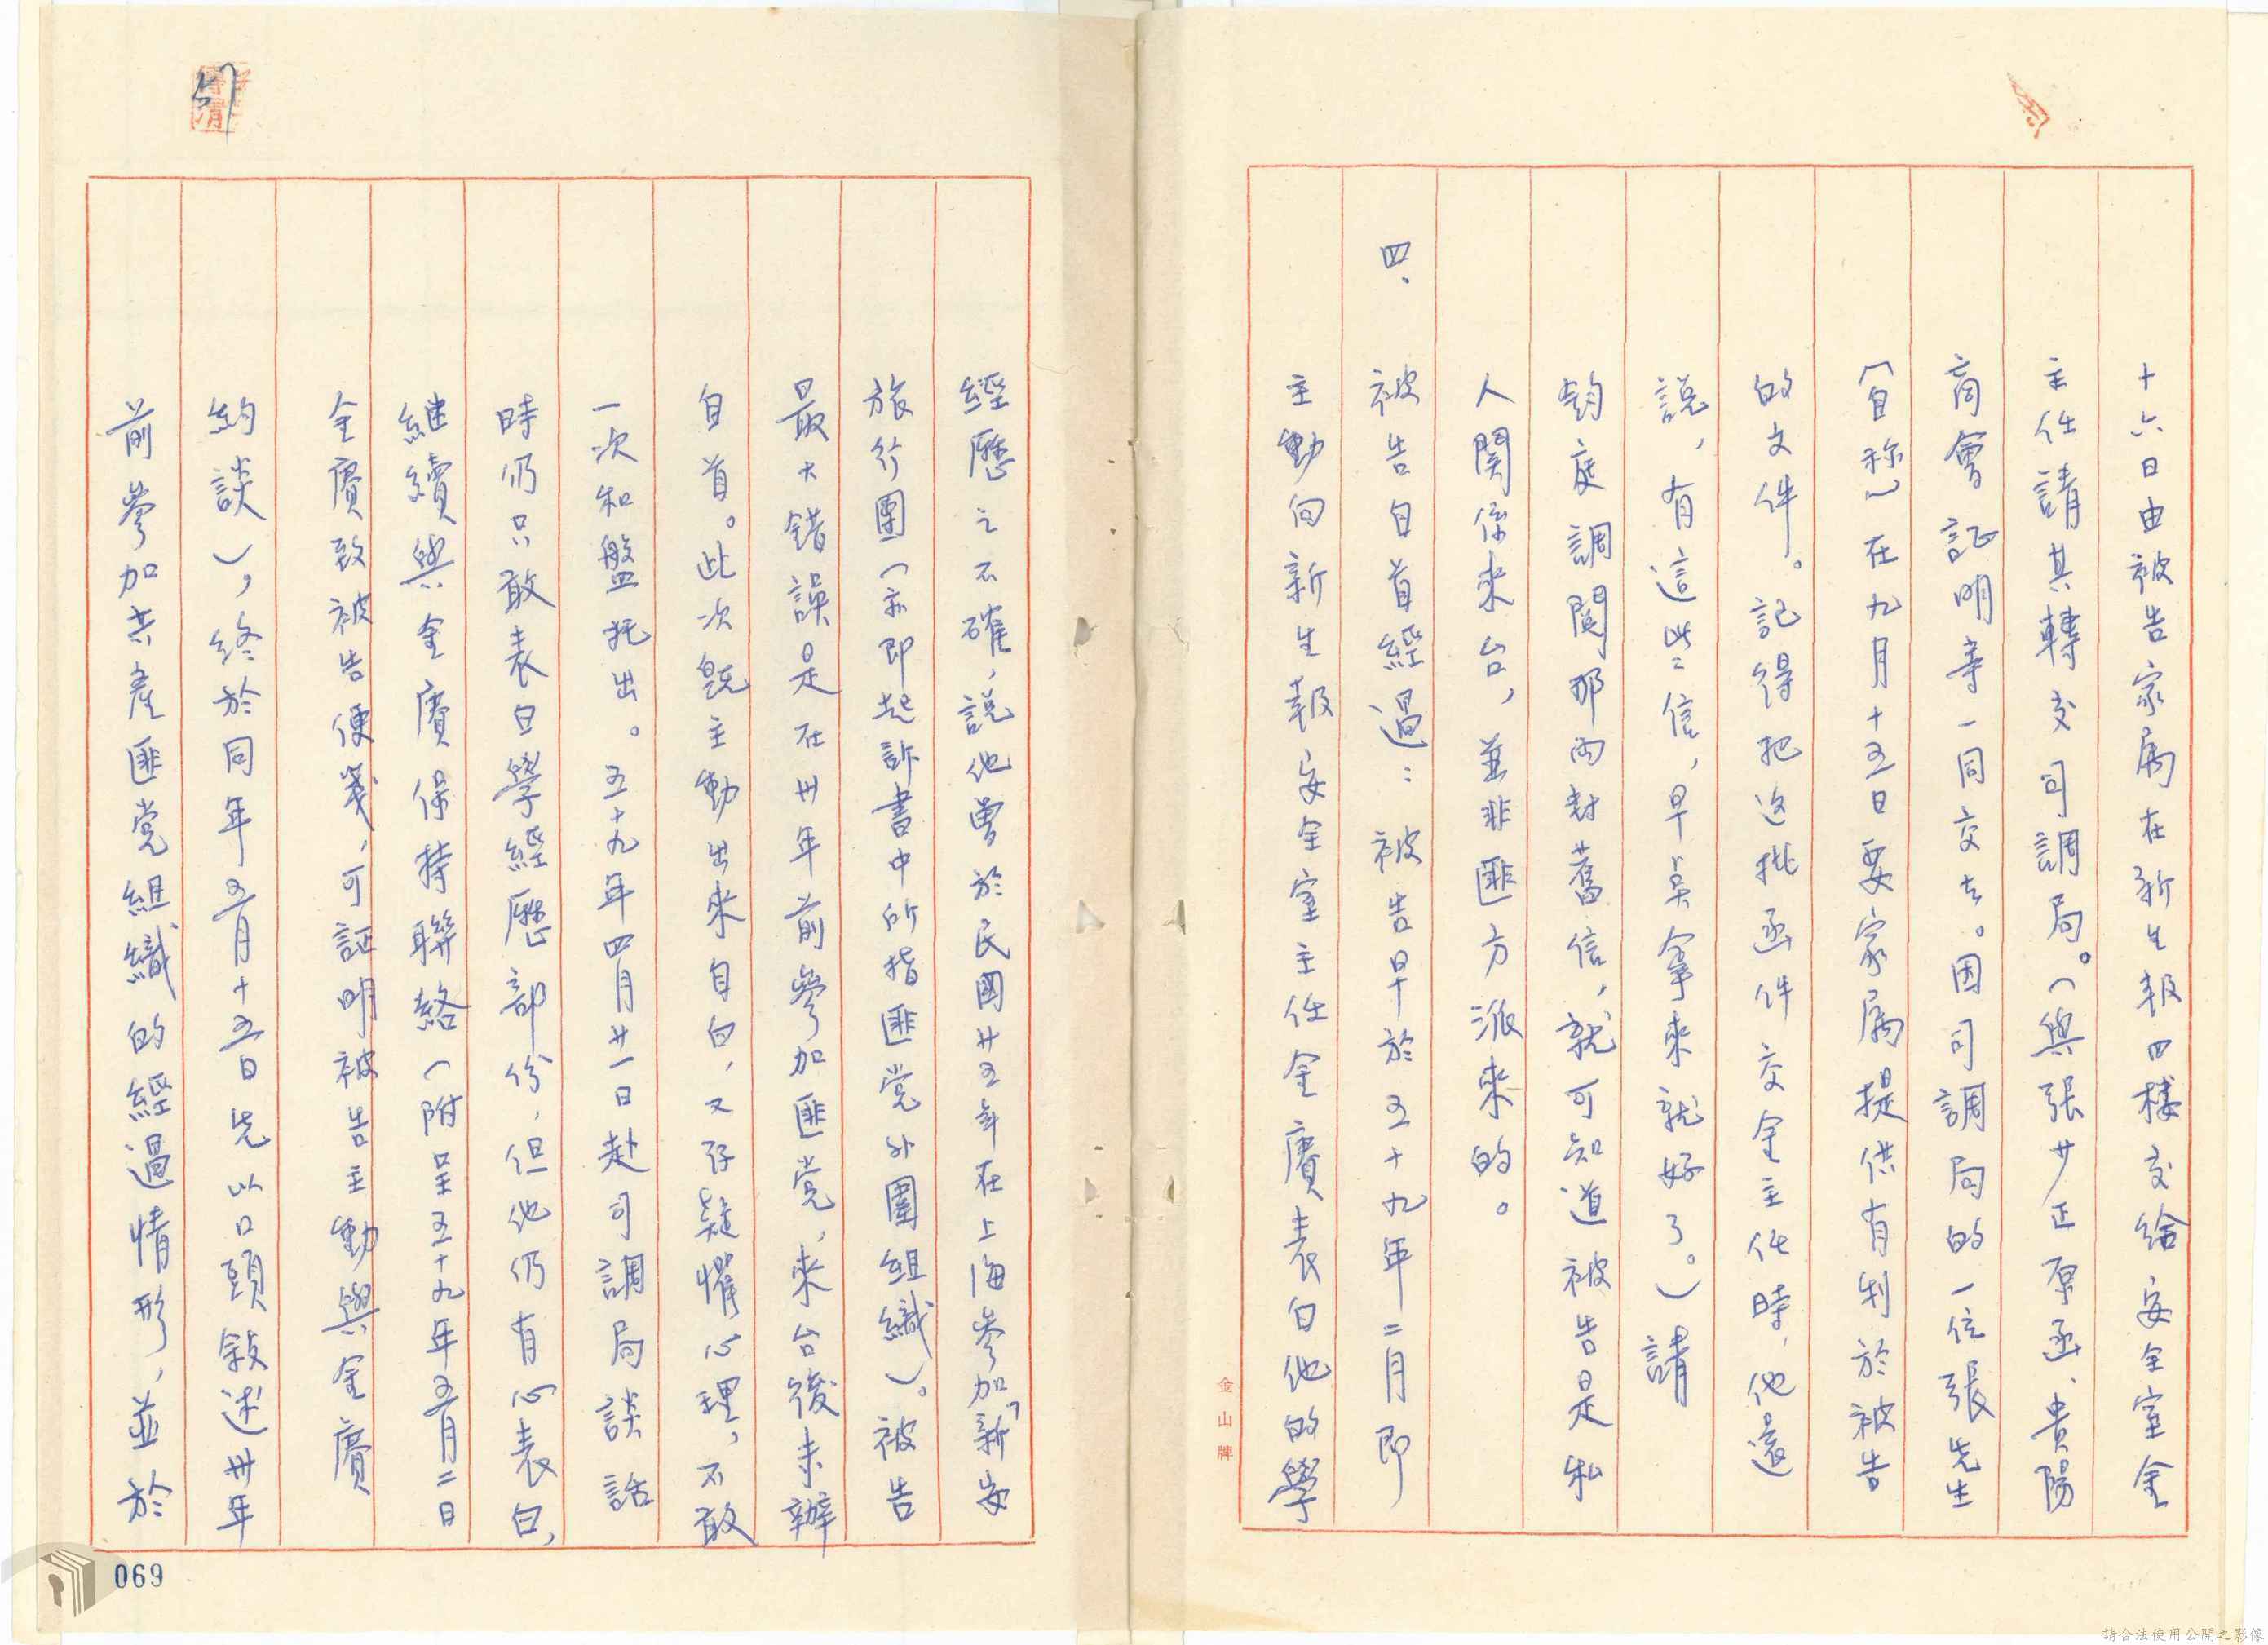 十六日由被告家屬在新生報四樓交給安全室金
主任請其轉交司調局。(與張少正原函、貴陽
商會証明等一同交去。因司調局的一位張先生
(自称)在九月十五日要家屬提供有利於被告
的文件。記得把这批函件交金主任時,他還
說,有這些信,早點拿來就好了。)請
鈞庭調閱那兩封舊信,就可知道被告是私
人關係來台,並非匪方派來的。
四、被告自首經過:被告早於五十九年二月即
主動向新生報安全室主任金賡表白他的學
經歷之不確,說他曾於民國廿五年在上海參加「新安
旅行團(亦即起訴書中所指匪党外圍組織)。被告
最大錯誤是在卅年前參加匪党,來台後未辦
自首。此次既主動出來自白,又存疑懼心理,不敢
一次和盤托出。五十九年四月廿一日赴司調局談話
時仍只敢表白學經歷部份,但他仍有心表白,
繼續與金賡保持聯絡(附呈五十九年五月二日
金賡致被告便箋,可証明被告主動與金賡
約談),終於同年五月十五日先以口頭敘述卅年
前參加共產匪党組織的經過情形,並於
金山牌
069
請合法使用公開之影像